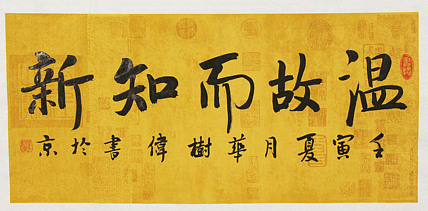 温故而知新
壬寅夏月華樹偉書於京